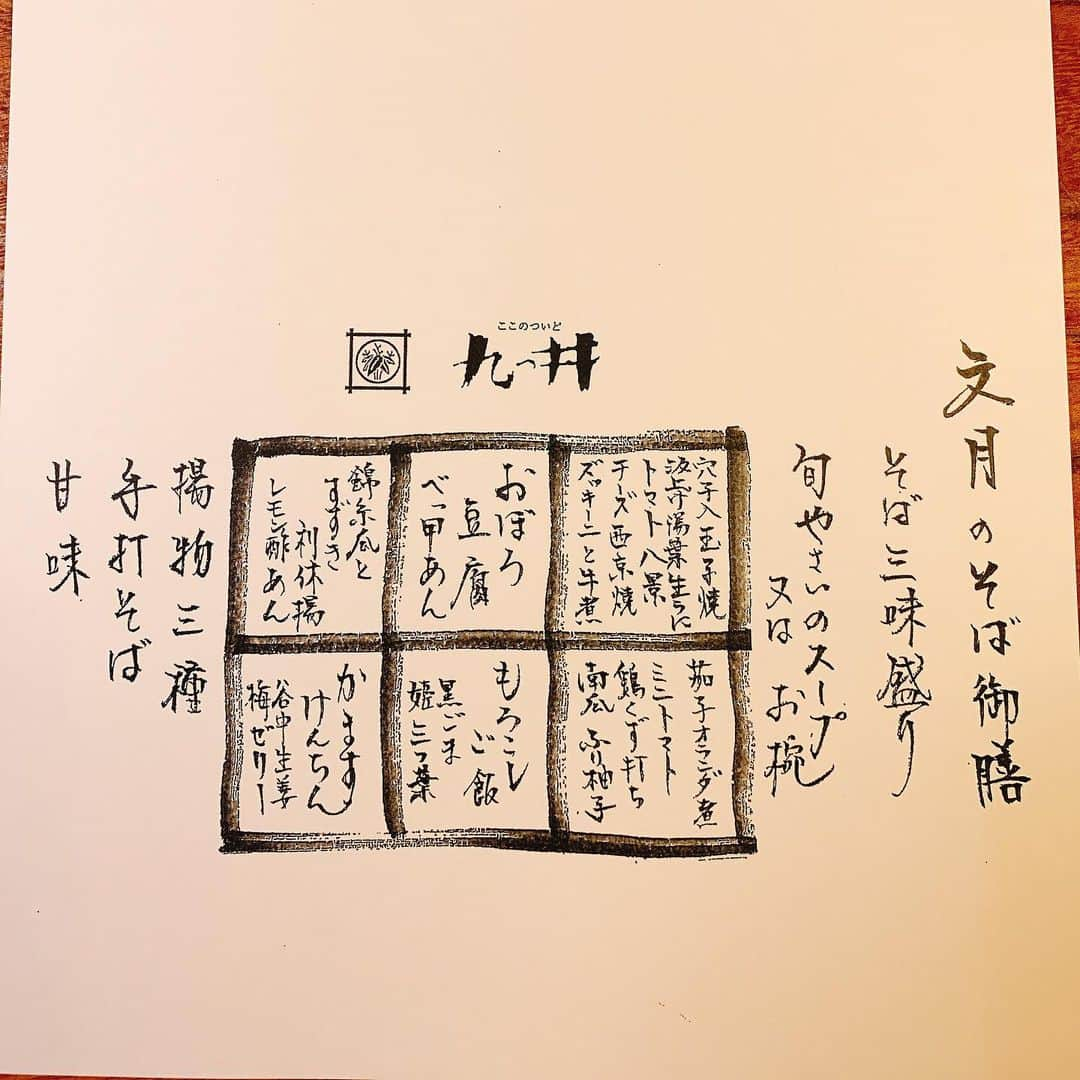 文月のそば御膳
そば三味盛り
旬やさいのスープ
又は お椀
ここのついど
九つ井
穴子入玉子焼
汲上げ湯葉生うに
トマト八景
チーズ西京焼
ズッキーニと牛煮
おぼろ
豆腐
べっ甲あん
錦糸瓜と
すずき
利休揚
レモン酢あん
茄子オランダ煮
ミニトマト
鶏くず打ち
南瓜 ふり柚子
もろこし
ご飯
黒ごま
姫三つ葉
かます
けんちん
谷中生姜
梅ゼリー
揚物三種
手打そば
甘味